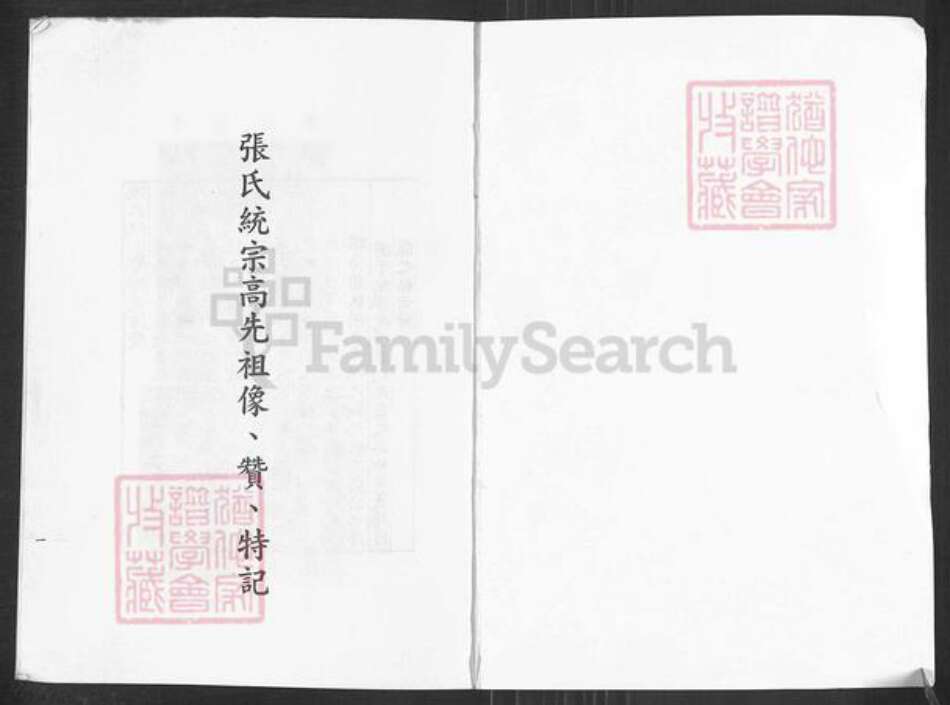 猶他家
譜學會
收藏
張氏統宗高先祖像、贊、特記
猶他家
譜學會
收藏
FamilySearch